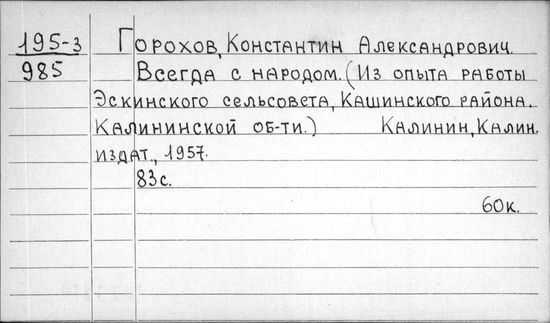 195-3
985
Горохов, Константин Александрович.
Всегда с народом. (Из опыта работы
Эскинского сельсовета, Кашинского района.
Калининской об-ти.) Калинин, Калин.
издат., 1957.
83с.
60к.